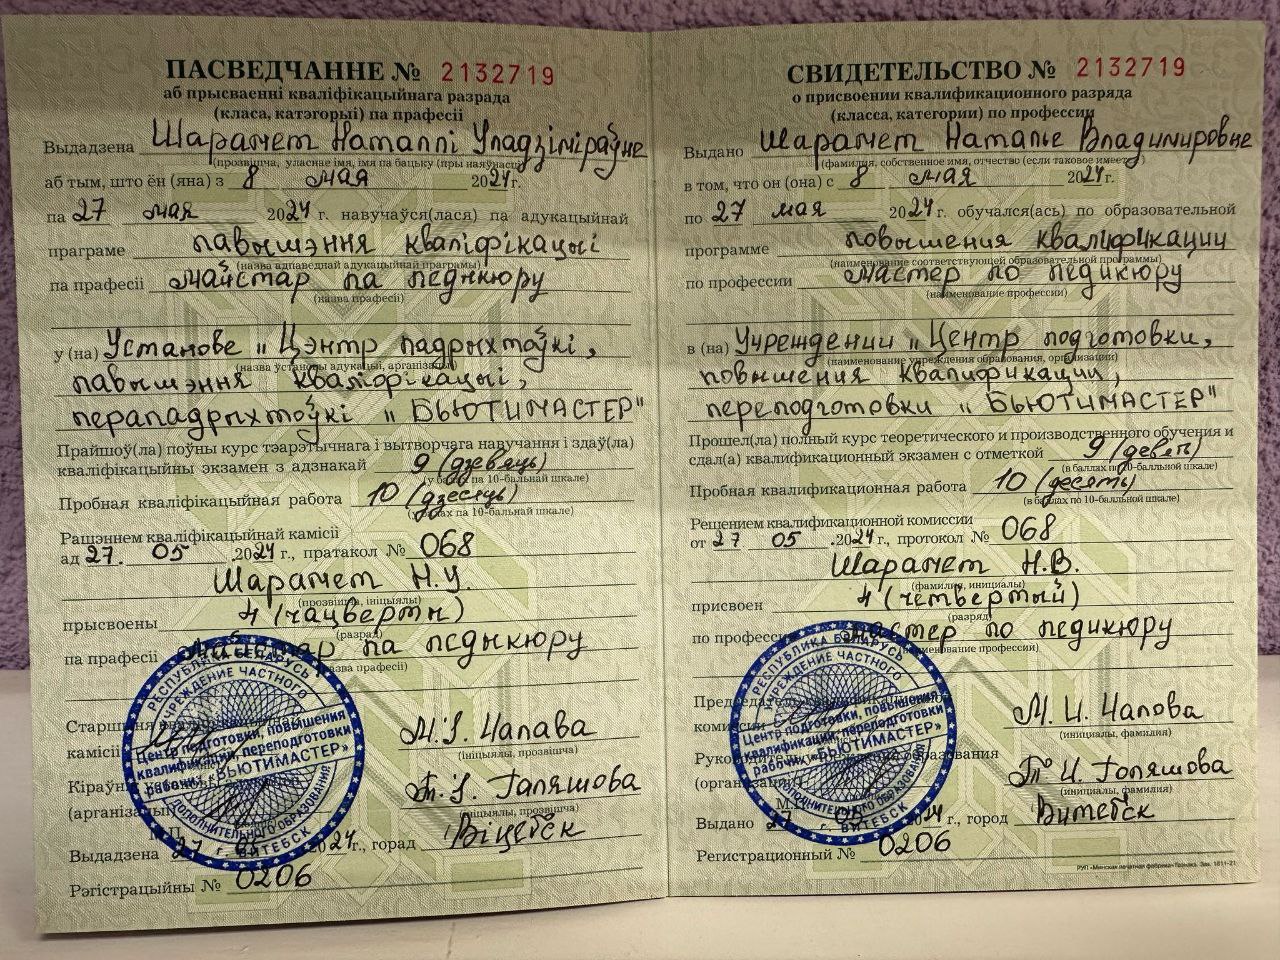 ПАСВЕДЧАННЕ № 2132719
аб прысваенні кваліфікацыйнага разрада
(класа, катэгорыі) па прафесіі
Выдадзена Шарамет Наталлі Уладзіміраўне
(прозвішча, уласнае імя, імя па бацьку (пры наяўнасці)
аб тым, што ён (яна) з 8 мая 2024 г.
па 27 мая 2024 г. навучаўся(лася) па адукацыйнай
праграме павышэння кваліфікацыі
(назва адпаведнай адукацыйнай праграмы)
па прафесіі майстар па педыкюру
(назва прафесіі)
у (на) Установе "Цэнтр падрыхтоўкі,
(назва ўстановы адукацыі, арганізацыі)
павышэння кваліфікацыі,
перападрыхтоўкі "БЬЮТИМАСТЕР"
Прайшоў(ла) поўны курс тэарэтычнага і вытворчага навучання і здаў(ла)
кваліфікацыйны экзамен з адзнакай 9 (дзевяць)
(у балах па 10-бальнай шкале)
Пробная кваліфікацыйная работа 10 (дзесяць)
(у балах па 10-бальнай шкале)
Рашэннем кваліфікацыйнай камісіі
ад 27. 05 .2024 г., пратакол № 068
Шарамет Н.У.
(прозвішча, ініцыялы)
прысвоены 4 (чацверты)
(разрад)
па прафесіі майстар па педыкюру
(назва прафесіі)
Старшыня кваліфікацыйнай
камісіі М.І. Чапава
(ініцыялы, прозвішча)
Кіраўнік
(арганізацыі) Т.І. Галяшова
(ініцыялы, прозвішча)
М.П.
Выдадзена 27 05 2024 г., горад Віцебск
Рэгістрацыйны № 0206
РЕСПУБЛИКА БЕЛАРУСЬ
УЧРЕЖДЕНИЕ ЧАСТНОГО
Центр подготовки, повышения
квалификации, переподготовки
рабочих «БЬЮТИМАСТЕР»
ДОПОЛНИТЕЛЬНОГО ОБРАЗОВАНИЯ
г. ВИТЕБСК
СВИДЕТЕЛЬСТВО № 2132719
о присвоении квалификационного разряда
(класса, категории) по профессии
Выдано Шарамет Наталье Владимировне
(фамилия, собственное имя, отчество (если таковое имеется)
в том, что он (она) с 8 мая 2024 г.
по 27 мая 2024 г. обучался(ась) по образовательной
программе повышения квалификации
(наименование соответствующей образовательной программы)
по профессии мастер по педикюру
(наименование профессии)
в (на) Учреждении "Центр подготовки,
(наименование учреждения образования, организации)
повышения квалификации,
переподготовки "БЬЮТИМАСТЕР"
Прошел(ла) полный курс теоретического и производственного обучения и
сдал(а) квалификационный экзамен с отметкой 9 (девять)
(в баллах по 10-балльной шкале)
Пробная квалификационная работа 10 (десять)
(в баллах по 10-балльной шкале)
Решением квалификационной комиссии
от 27 05 .2024 г., протокол № 068
Шарамет Н.В.
(фамилия, инициалы)
присвоен 4 (четвертый)
(разряд)
по профессии мастер по педикюру
(наименование профессии)
Председатель квалификационной
комиссии М.И. Чапова
(инициалы, фамилия)
Руководитель учреждения образования
(организации) Т.И. Голяшова
(инициалы, фамилия)
М.П.
Выдано 27 05 2024 г., город Витебск
Регистрационный № 0206
РУП «Минская печатная фабрика» Гознака. Зак. 1811-21
РЕСПУБЛИКА БЕЛАРУСЬ
УЧРЕЖДЕНИЕ ЧАСТНОГО
Центр подготовки, повышения
квалификации, переподготовки
рабочих «БЬЮТИМАСТЕР»
ДОПОЛНИТЕЛЬНОГО ОБРАЗОВАНИЯ
г. ВИТЕБСК